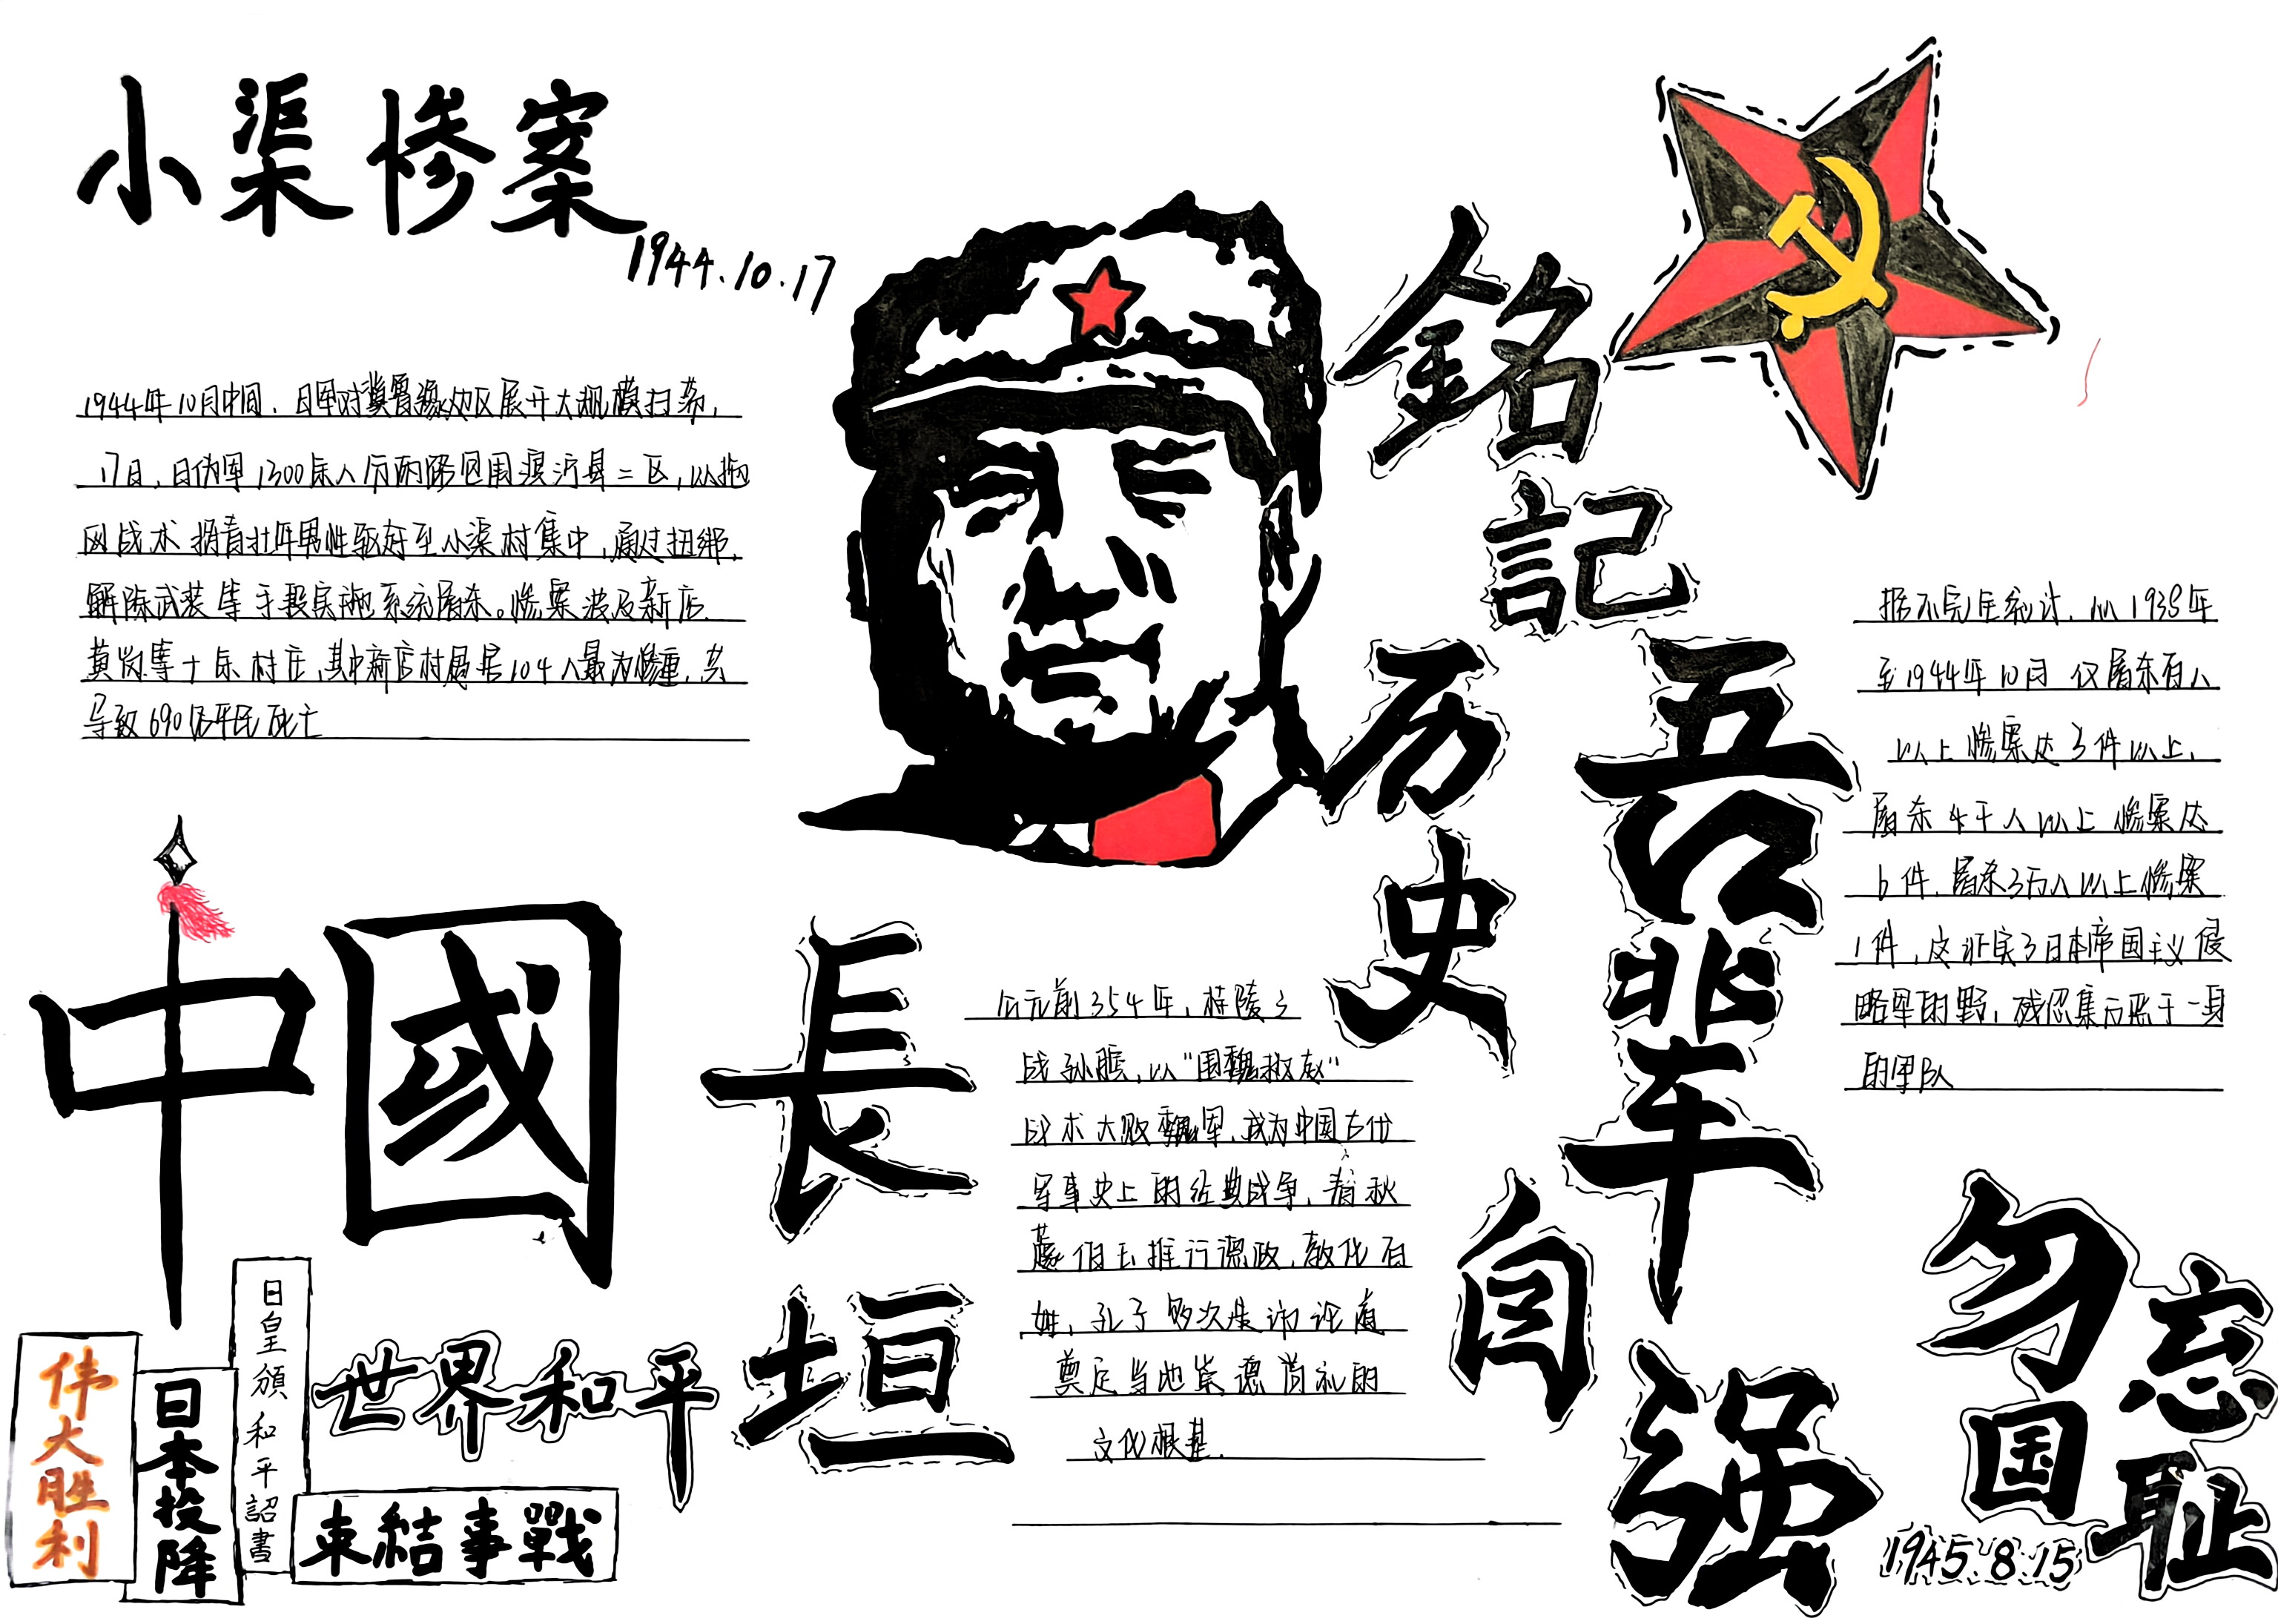 小渠惨案
1944.10.17
1944年10月中旬，日军对冀鲁豫边区展开大规模扫荡，
17日，日伪军1300余人分两路包围滨河县二区，以拖
网战术 将青壮年男性驱赶至小渠村集中，通过捆绑、
解除武装等手段实施系统屠杀。惨案波及新店、
黄岗等十余村庄，其中新店村屠居104人最为惨重，共
导致690名平民死亡
銘
記
历
史
吾
辈
自
强
据不完全统计，从1938年
至1944年10月 仅屠杀百人
以上惨案达3件以上，
屠杀4千人以上惨案达
6件，屠杀3万人以上惨案
1件，这证实了日本帝国主义侵
略军的野，残忍集万恶于一身
的军队
中國
長
垣
公元前354年，桂陵之
战孙膑，以“围魏救赵”
战术大败魏军，成为中国古代
军事史上的经典战争，春秋
蘧伯玉推行德政，教化百
姓，孔子多次来访论道
奠定当地崇德尚礼的
文化根基。
勿忘
国耻
1945.8.15
伟大胜利
日本投降
日皇頒和平詔書
世界和平
束結事戰